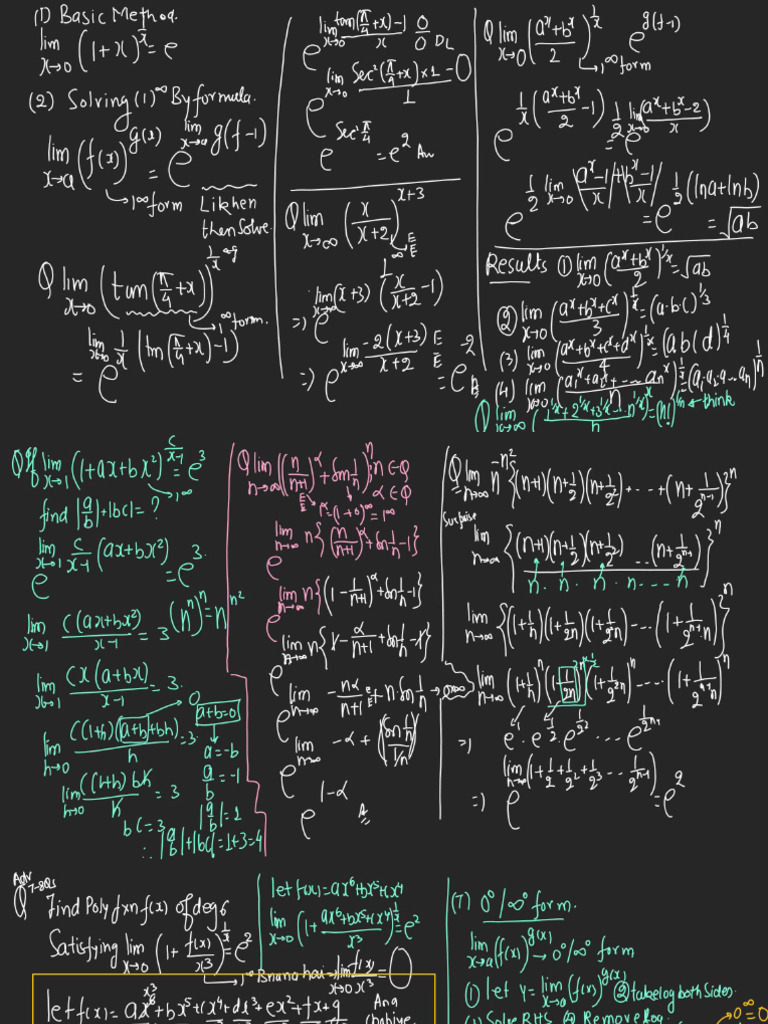 (1) Basic Method.
lim x→0 (1+x)^{1/x} = e
(2) Solving (1)^∞ By formula.
lim x→a (f(x))^{g(x)} = e^{lim x→a g(f-1)}
→1^∞ form
Likhen
then Solve.
Q lim x→0 (tan(π/4+x))^{1/x →g}
→1^∞ form.
= e^{lim x→0 1/x (tan(π/4+x)-1)}
e^{lim x→0 (tan(π/4+x)-1)/x} 0/0 DL
e^{lim x→0 (Sec²(π/4+x)×1-0)/1}
e^{Sec²π/4} = e² An
Q lim x→∞ (x/(x+2))^{x+3}
=) e^{lim x→∞ (x+3)(x/(x+2)-1)}
=) e^{lim x→∞ -2(x+3)/(x+2)} = e^{-2}
Q lim x→0 ((a^x+b^x)/2)^{1/x} e^{g(f-1)}
→1^∞ form
e^{1/x((a^x+b^x)/2-1)} = e^{1/2 lim x→0 (a^x+b^x-2)/x}
e^{1/2 lim x→0 (a^x-1)/x+(b^x-1)/x} = e^{1/2(lna+lnb)} = √ab
Results (1) lim x→0 ((a^x+b^x)/2)^{1/x} = √ab
(2) lim x→0 ((a^x+b^x+c^x)/3)^{1/x} = (a·b·c)^{1/3}
(3) lim x→0 ((a^x+b^x+c^x+d^x)/4)^{1/x} = (abcd)^{1/4}
(4) lim x→0 ((a₁^x+a₂^x+...an^x)/n)^{1/x} = (a₁·a₂·a...an)^{1/n}
Q lim x→∞ ((1^{1/x}+2^{1/x}+3^{1/x}...n^{1/x})/n)^{nx} = (n!) ← think
Q If lim x→1 (1+ax+bx²)^{c/(x-1)} = e³
→1^∞
find |a/b|+|bc| = ?
e^{lim x→1 c/(x-1) (ax+bx²)} = e³
lim x→1 c(ax+bx²)/(x-1) = 3
(nⁿ)ⁿ = n^{n²}
lim x→1 cx(a+bx)/(x-1) = 3
lim h→0 c(1+h)(a+b+bh)/h = 3
→0
a+b=0
a=-b
lim h→0 c(1+h)bh/h = 3
a/b = -1
bc=3
|a/b|=1
∴ |a/b|+|bc| = 1+3=4
Q lim n→∞ ((n/(n+1))^α + sin 1/n)ⁿ; n∈Q
α∈Q
1^α=(1+0)^∞=1^∞
e^{lim n→∞ n{(n/(n+1))^α+sin 1/n-1}}
e^{lim n→∞ n{(1-1/(n+1))^α+sin 1/n-1}}
e^{lim n→∞ n{1-α/(n+1)+sin 1/n-1}}
e^{lim n→∞ -nα/(n+1)+n·sin 1/n} →0×∞
e^{lim n→∞ -α+(sin 1/n)/(1/n)}
e^{1-α}
Q lim n→∞ n^{-n²}{(n+1)(n+1/2)(n+1/2²)+...+(n+1/2^{n-1})}ⁿ
Surprise
lim n→∞ {(n+1)(n+1/2)(n+1/2²)...(n+1/2^{n-1})}ⁿ
n · n · n · n · ... n
lim n→∞ {(1+1/n)(1+1/2n)(1+1/2²n)...(1+1/2^{n-1}n)}ⁿ
lim n→∞ (1+1/n)ⁿ(1+1/2n)^{2n×1/2}(1+1/2²n)ⁿ...(1+1/2^{n-1}n)ⁿ
=) e¹·e^{1/2}·e^{1/2²}...e^{1/2^{n-1}}
=) e^{lim n→∞ (1+1/2+1/2²+1/2³...1/2^{n-1})} = e²
Adv
Q 7-8 Qs
Find Poly fxn f(x) of deg 6
Satisfying lim x→0 (1+f(x)/x³)^{1/x} = e²
→1^∞ Banana hai → lim x→0 f(x)/x³ = 0
let f(x) = ax⁶+bx⁵+cx⁴+dx³+ex²+fx+g
x³
Ana
chahiye
let f(x) = ax⁶+bx⁵+cx⁴
lim x→0 (1+(ax⁶+bx⁵+cx⁴)/x³)^{1/x} = e²
(7) 0⁰/∞⁰ form.
lim x→a (f(x))^{g(x)} → 0⁰/∞⁰ form
(1) let y = lim x→0 (f(x))^{g(x)} (2) take log both Sides.
Solve RHS (4) Remove log.
→ 0^∞ = 0